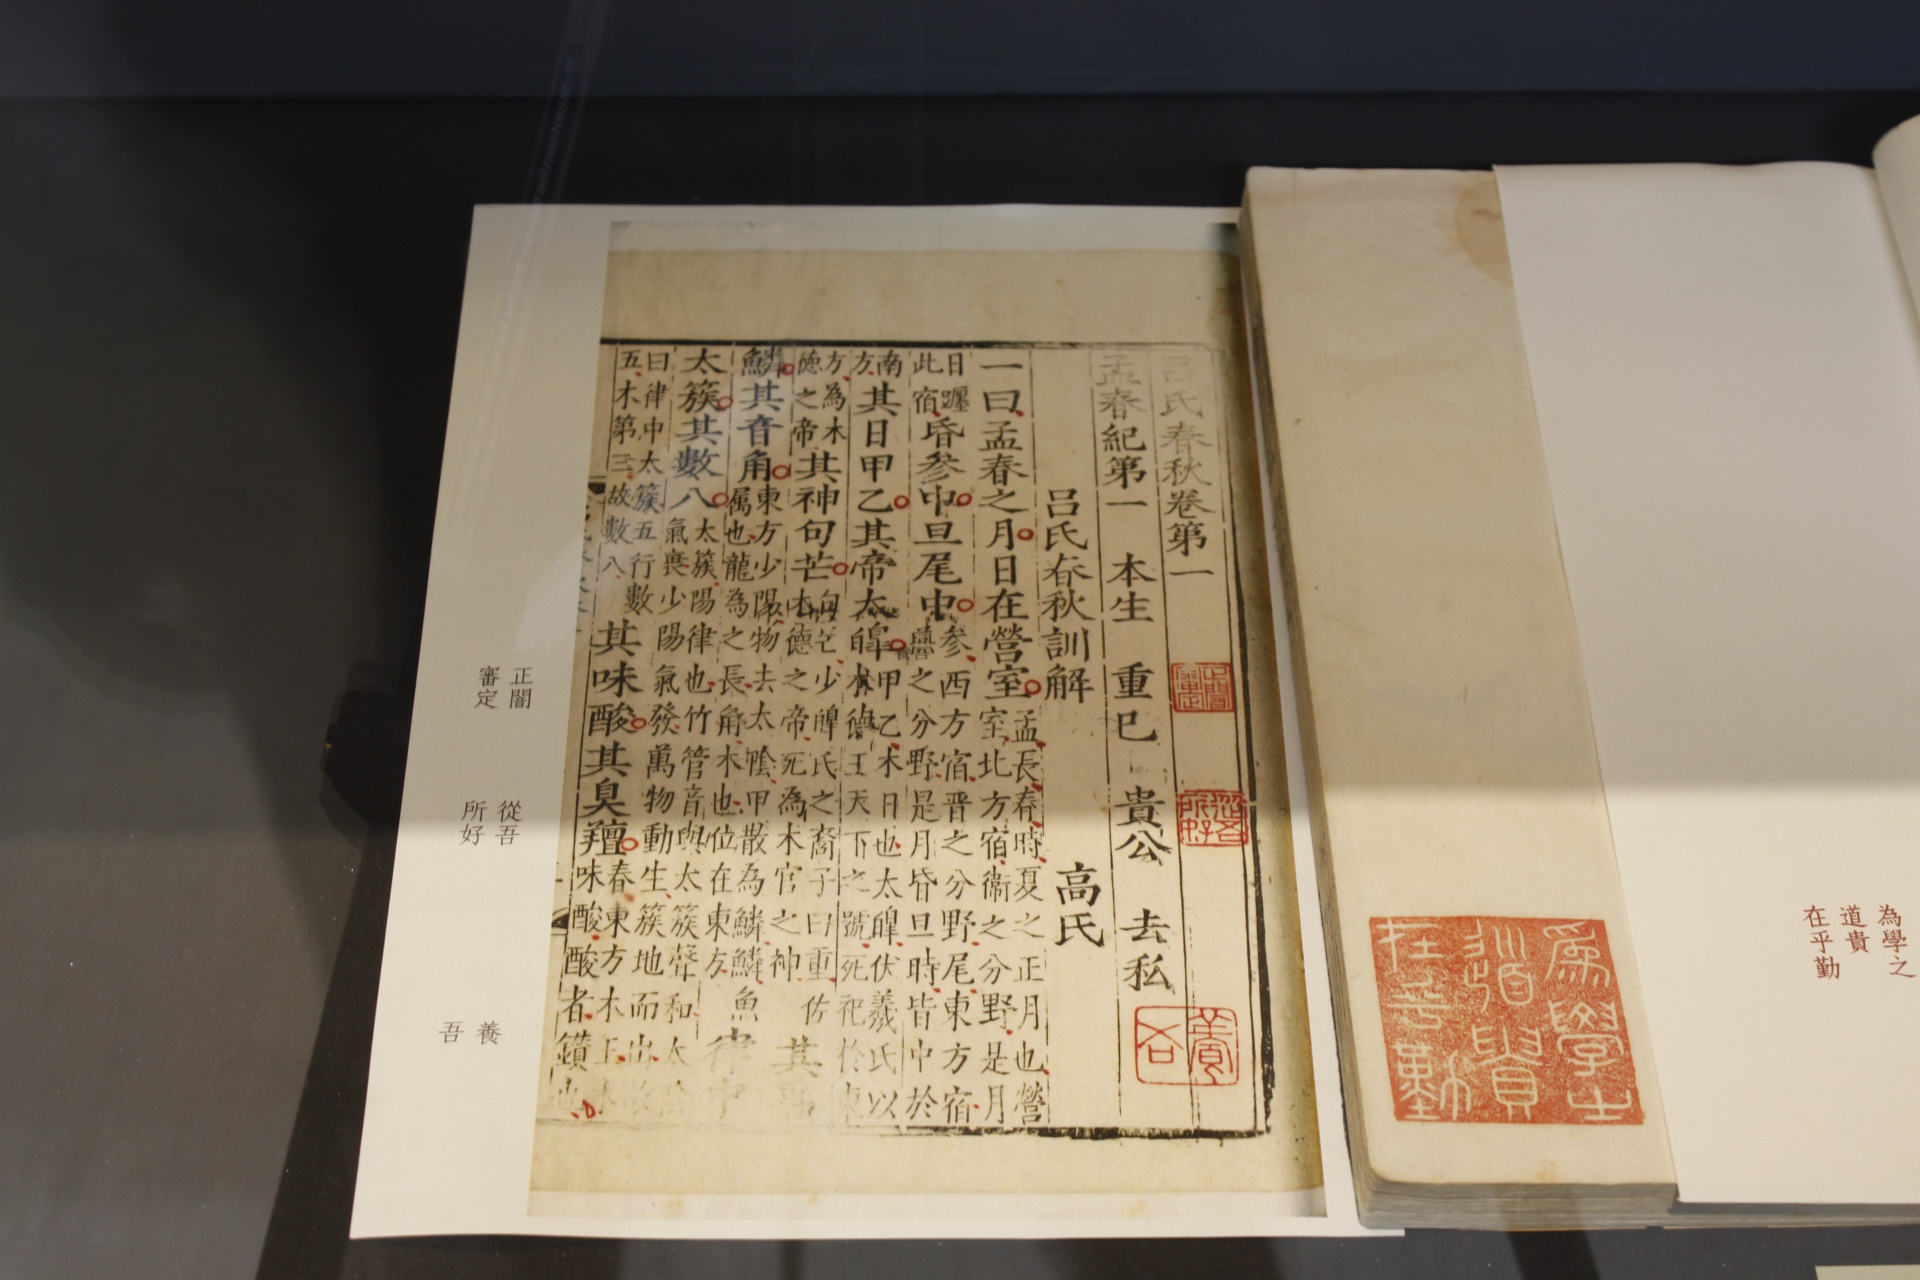 為學之
道貴
在乎勤
為學之
道貴
在乎勤
呂氏春秋卷第一
孟春紀第一 本生 重巳 貴公 去私
呂氏春秋訓解 高氏
一曰孟春之月日在營室孟長春時夏之正月也營
室北方宿衞之分野是月
日躔
此宿昏參中旦尾中參西方宿晋之分野尾東方宿
之分野是月昏旦時皆中於
南
方其日甲乙其帝太皥甲乙木日也太皥伏羲氏以
木德王天下之號死祀於東
方為木
德之帝其神句芒句芒少皥氏之裔子曰重佐
木德之帝死為木官之神其蟲
鱗其音角東方少陽物去太陰甲散為鱗鱗魚
属也龍為之長角木也位在東方律中
太簇其數八太簇陽律也竹管音與太簇聲和太陰
氣衰少陽氣發萬物動生簇地而出故
曰律中太簇五行數
五木第三故數八其味酸其臭羶春東方木王木
味酸酸者鑽也
正闇
審定
從吾
所好
養
吾
正闇
審定
從吾
所好
養
吾